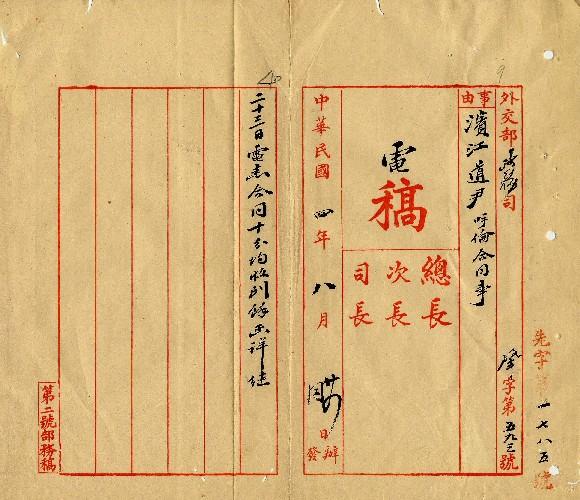 外交部 司
事由
濱江道尹呼倫合同事
發字第五九三號
先字 一七八五號
電稿
總長
次長
司長
中華民國四年八月
日辦發
二十三日電悉合同十分均收到餘函詳達
第二號部務稿